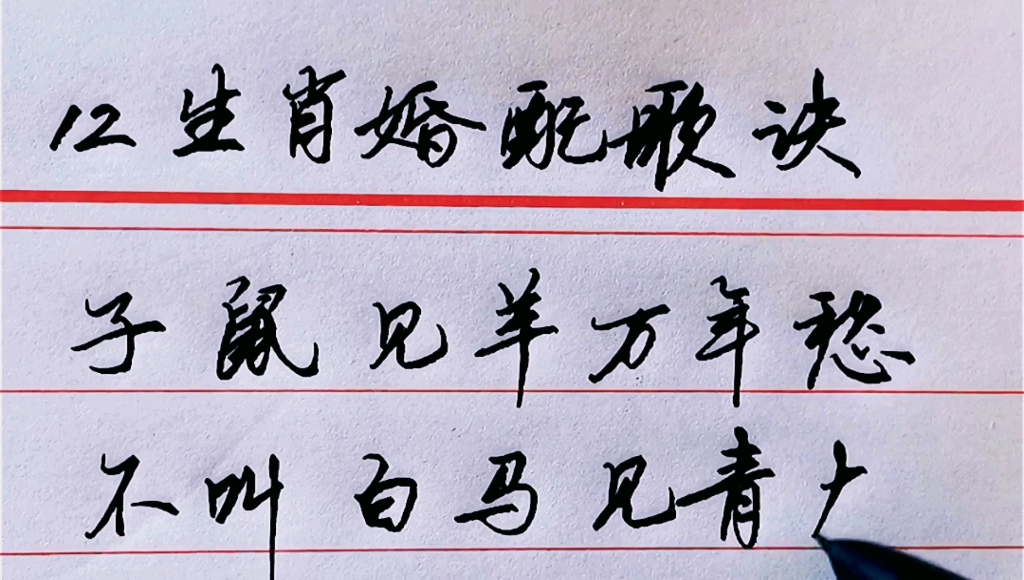 12生肖婚配歌诀
子鼠见羊万年愁
不叫白马见青